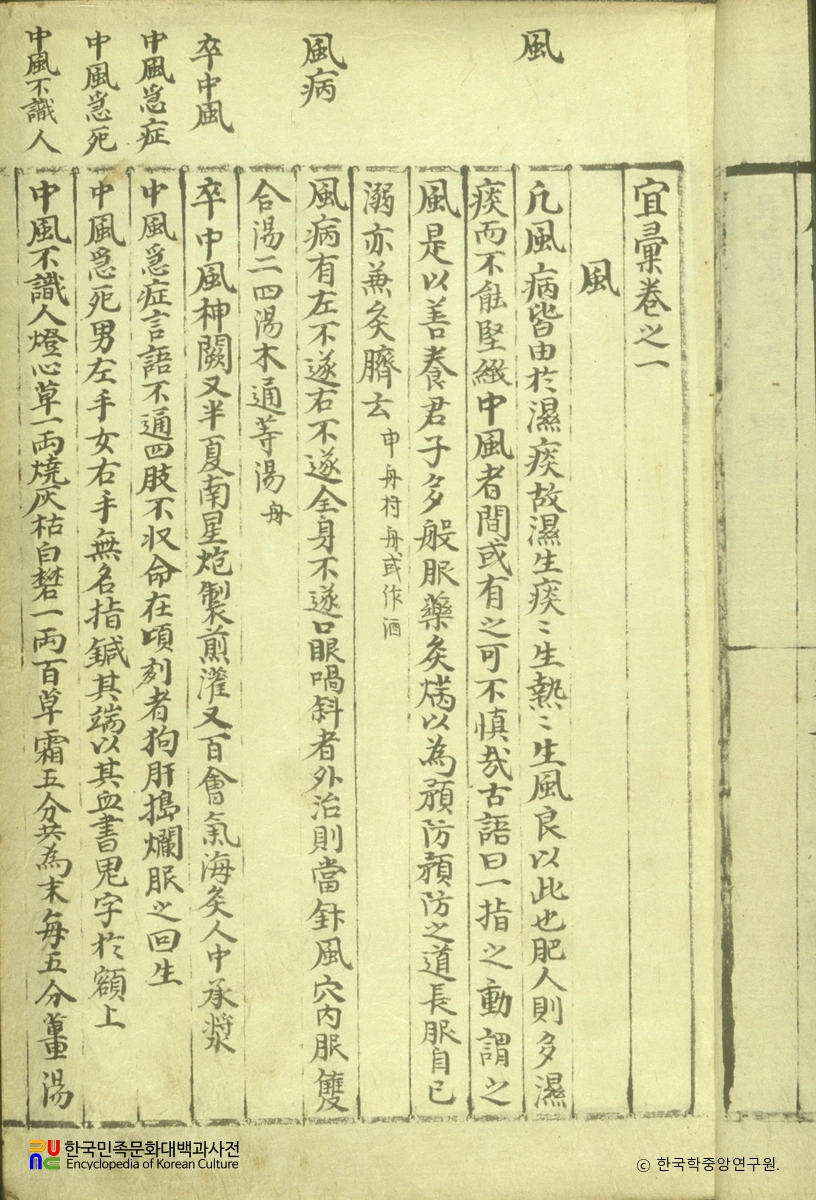 宜彙卷之一
風
風
凡風病皆由於濕痰故濕生痰〻生熱〻生風良以此也肥人則多濕
痰而不能堅緻中風者間或有之可不慎哉古語曰一指之動謂之
風是以善養君子多般服藥灸焫以為預防預防之道長服自己
溺亦兼灸臍云 申舟村 舟或作洒
風病
風病有左不遂右不遂全身不遂口眼喎斜者外治則當針風穴內服雙
合湯二四湯木通等湯舟
卒中風
卒中風神闕又半夏南星炮製煎灌又百會氣海灸人中承漿
中風急症
中風急症言語不通四肢不收命在頃刻者狗肝搗爛服之回生
中風急死
中風急死男左手女右手無名指鍼其端以其血書鬼字於額上
中風不識人
中風不識人燈心草一兩燒灰枯白礬一兩百草霜五分共為末每五分薑湯
한국민족문화대백과사전
Encyclopedia of Korean Culture
© 한국학중앙연구원.